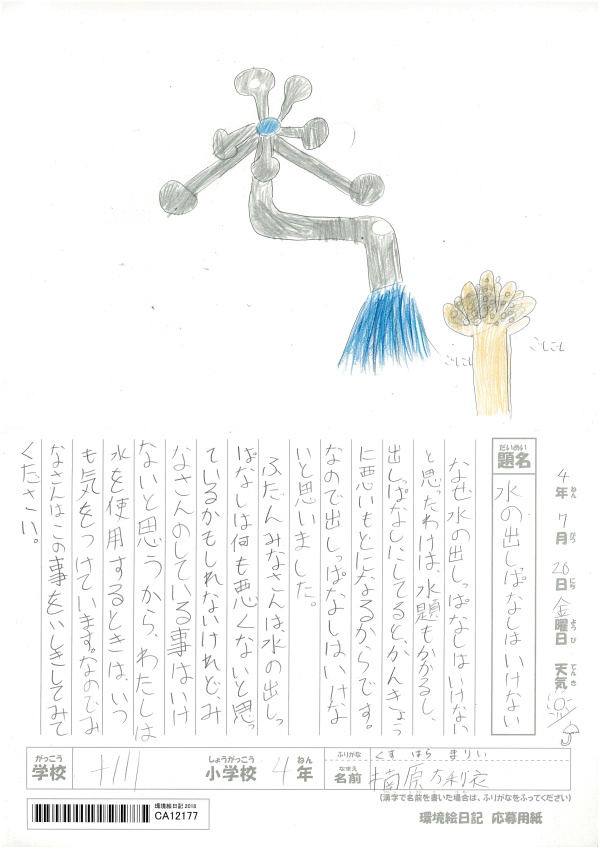 ごしごし
ごしごし
4年7月20日金曜日 天気
ねん がつ にち ようび てんき
だいめい
題名
水の出しっぱなしはいけない
なぜ水の出しっぱなしはいけない
と思ったわけは、水題もかかるし、
出しっぱなしにしてると、かんきょう
に悪いもとになるからです。
なので出しっぱなしはいけな
いと思いました。
ふだんみなさんは水の出しっ
ぱなしは何も悪くないと思っ
ているかもしれないけれど、み
なさんのしている事はいけ
ないと思うから、わたしは
水を使用するときは、いつ
も気をつけています。なのでみ
なさんはこの事をいしきしてみて
ください。
がっこう
学校
しょうがっこう
小学校
4年
ねん
ふりがな
くすはら まりい
なまえ
名前
楠原 利衣
(漢字で名前を書いた場合は、ふりがなをふってください)
環境絵日記 2018
CA12177
環境絵日記 応募用紙